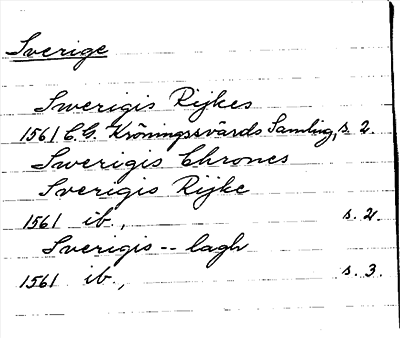 Sverige
Swerigis Rijkes
1561 C.G. Kröningssvärds Samling, s. 2.
Swerigis Chrones
Sverigis Rijke
1561 ib., s. 2.
Sverigis -- lagh
1561 ib., s. 3.